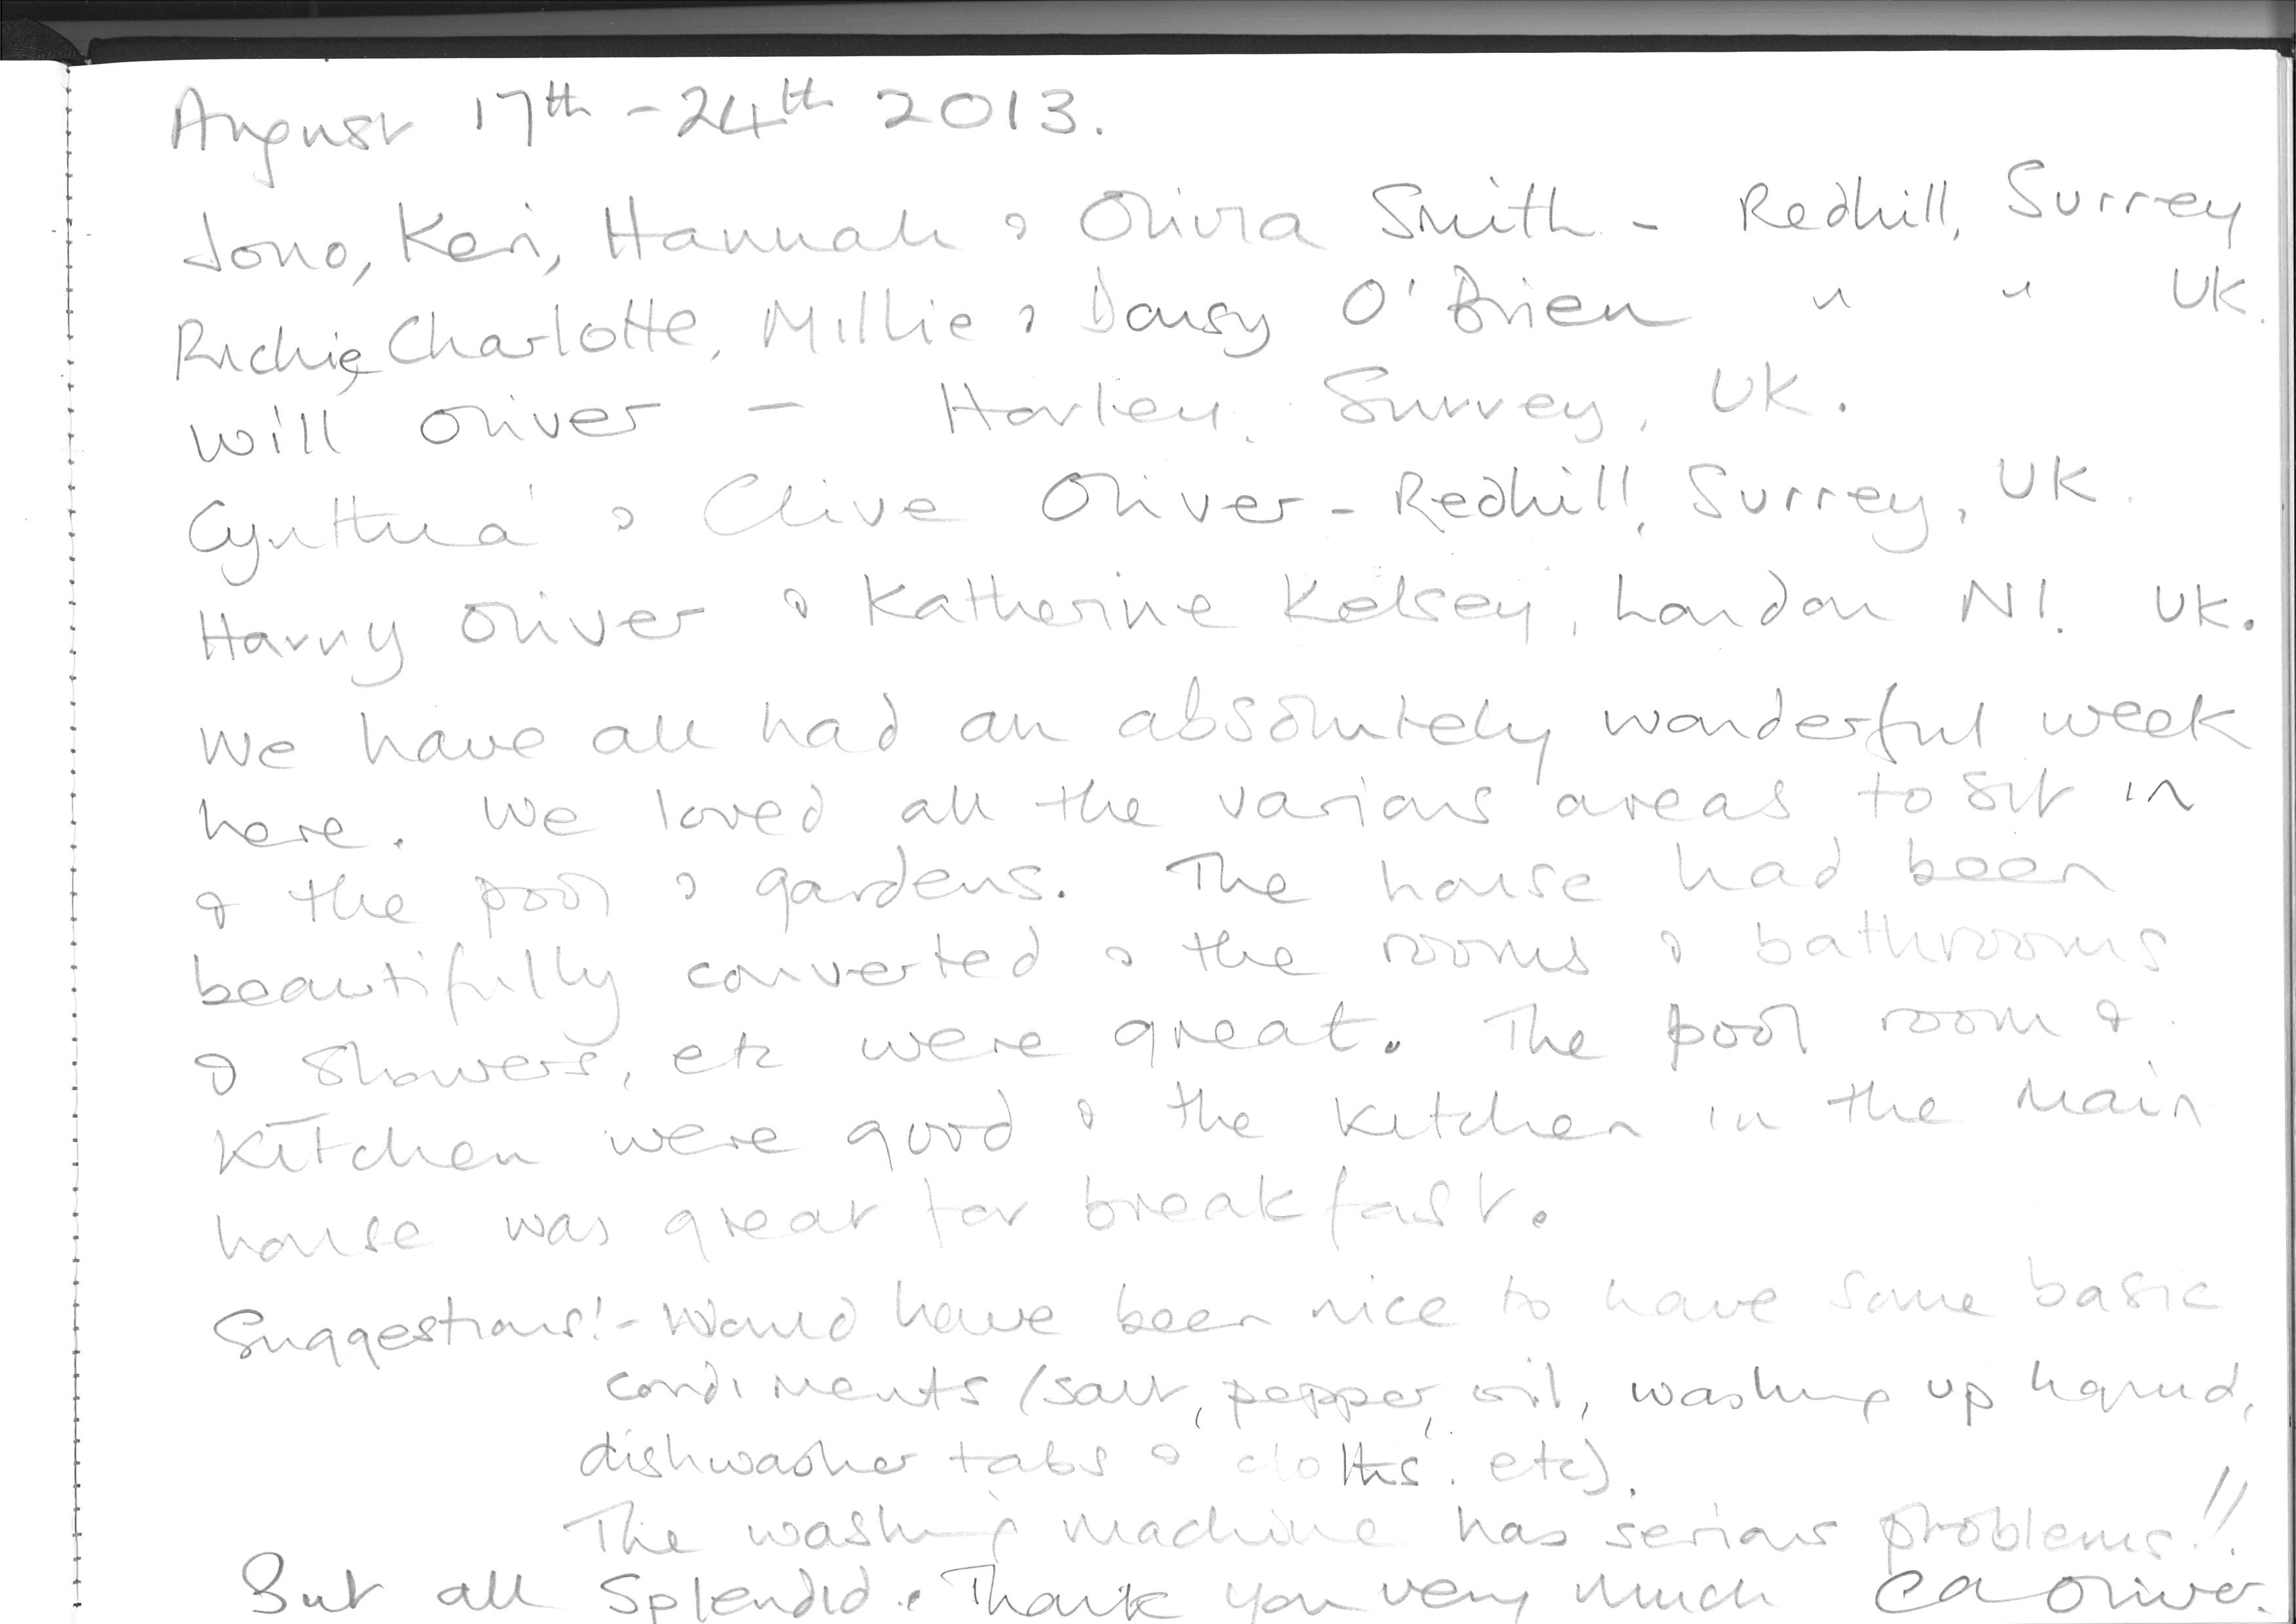 August 17th - 24th 2013.
Jono, Keri, Hannah & Olivia Smith - Redhill, Surrey
Richie, Charlotte, Millie & Daisy O'Brien " " UK.
Will Oliver - Horley, Surrey, UK.
Cynthia & Clive Oliver - Redhill, Surrey, UK.
Harry Oliver & Katherine Kelsey, London N1. UK.
We have all had an absolutely wonderful week
here. We loved all the various areas to sit in
& the pool & gardens. The house had been
beautifully converted & the rooms & bathrooms
& showers, etc were great. The pool room &
kitchen were good & the kitchen in the main
house was great for breakfast.
Suggestions! - Would have been nice to have some basic
condiments (salt, pepper, oil, washing up liquid,
dishwasher tabs & cloths. etc).
The washing machine has serious problems!!
But all splendid. Thank you very much CA Oliver.